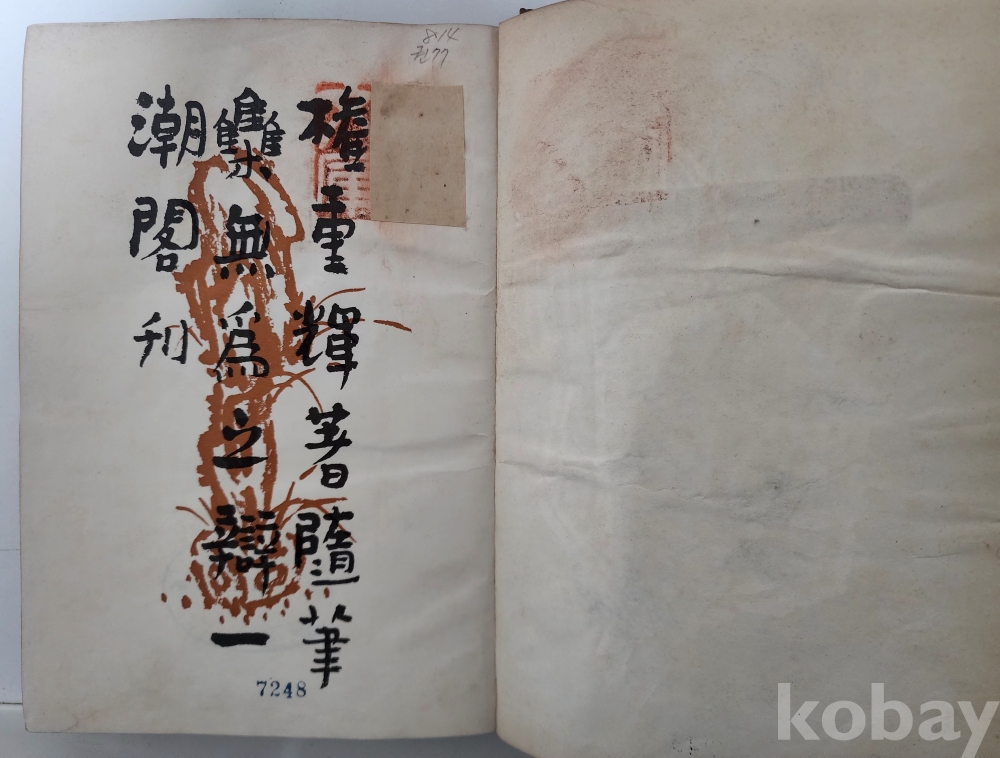 8.14
권77
権重輝著隨筆
雧無爲之辯一
潮閣刊
7248
kobay